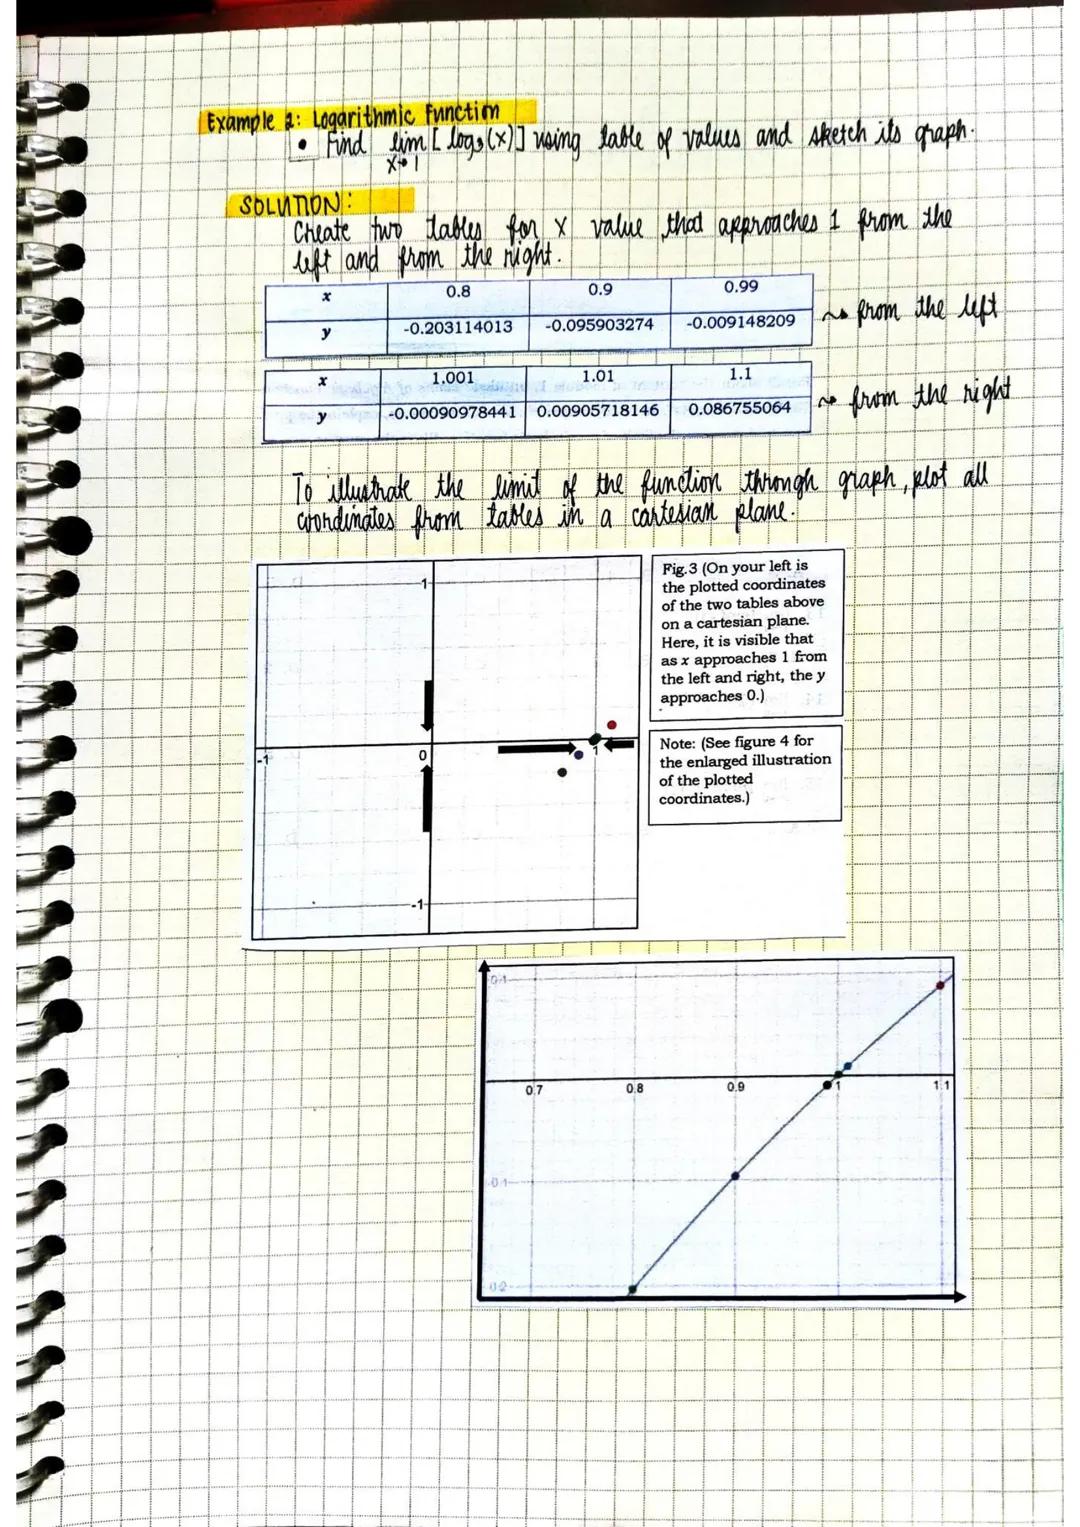 Example 2: Logarithmic Function
• Find lim [ log₃(x)] using table of values and sketch its graph.
x→1
SOLUTION:
Create two tables for x value that approaches 1 from the
left and from the right.
x 0.8 0.9 0.99
y -0.203114013 -0.095903274 -0.009148209
from the left
x 1.001 1.01 1.1
y -0.00090978441 0.00905718146 0.086755064
from the right
To illustrate the limit of the function through graph, plot all
coordinates from tables in a cartesian plane.
1
-1
0
1
-1
Fig.3 (On your left is
the plotted coordinates
of the two tables above
on a cartesian plane.
Here, it is visible that
as x approaches 1 from
the left and right, the y
approaches 0.)
Note: (See figure 4 for
the enlarged illustration
of the plotted
coordinates.)
0.1
0.7 0.8 0.9 1 1.1
-0.1
-0.2